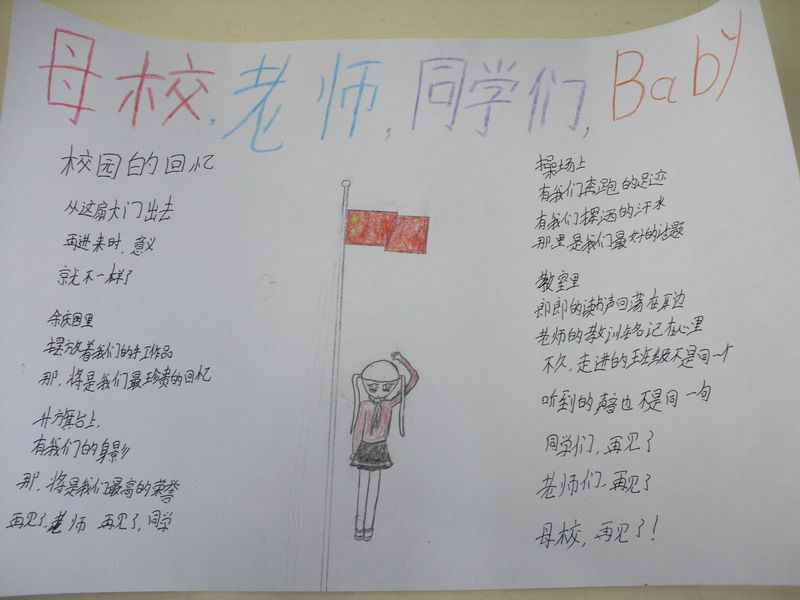 母校,老师,同学们,Baby
校园的回忆
从这扇大门出去
再进来时,意义
就不一样了
余庆园里
摆放着我们的手工作品
那,将是我们最珍贵的回忆
升旗台上,
有我们的身影
那,将是我们最高的荣誉
再见了,老师 再见了,同学
操场上
有我们奔跑的足迹
有我们挥洒的汗水
那里是我们最好的话题
教室里
郎郎的读书声回荡在耳边
老师的教训铭记在心里
不久,走进的班级不是同一个
听到的声音也不是同一句
同学们,再见了
老师们,再见了
母校,再见了!